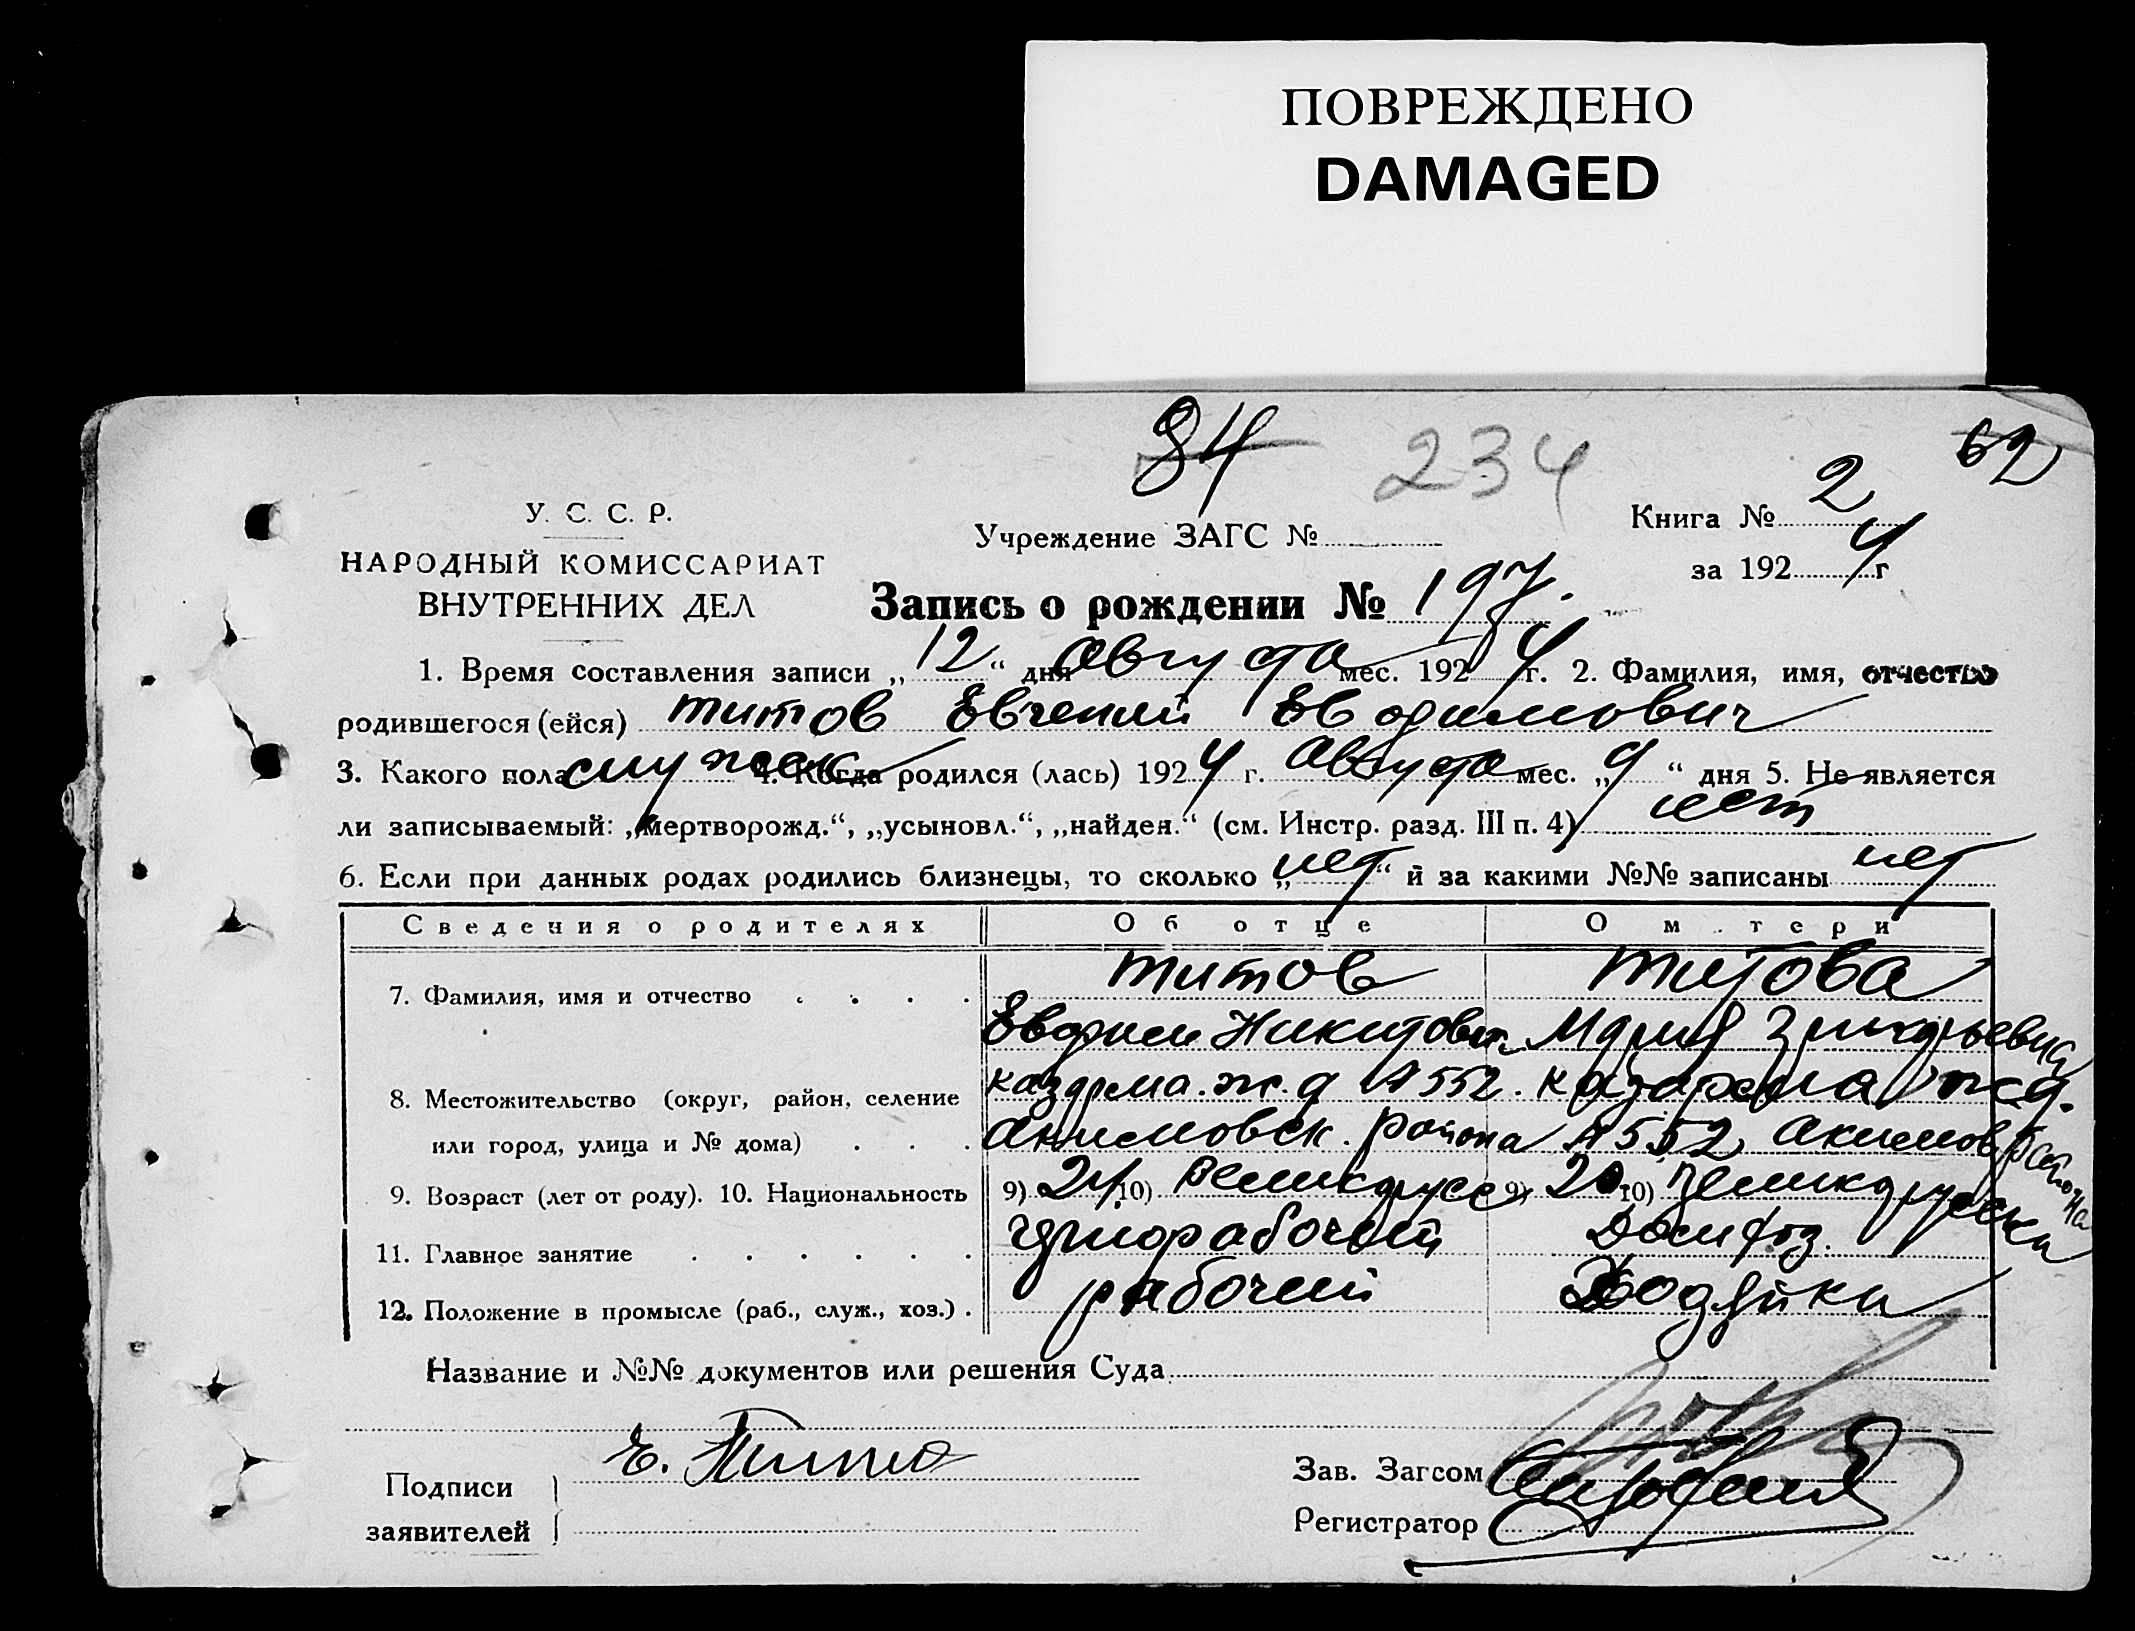 ПОВРЕЖДЕНО
DAMAGED
84 234 62
У. С. С. Р.
НАРОДНЫЙ КОМИССАРИАТ
ВНУТРЕННИХ ДЕЛ
Учреждение ЗАГС №
Книга № 2
за 1924 г
Запись о рождении № 197.
1. Время составления записи „12“ дня Августа мес. 1924 г. 2. Фамилия, имя, отчество
родившегося (ейся) Титов Евгений Евдокимович
3. Какого пола мужск 4. Когда родился (лась) 1924 г. Августа мес. „9“ дня 5. Не является
ли записываемый: „мертворожд.“, „усыновл.“, „найден.“ (см. Инстр. разд. III п. 4) нет
6. Если при данных родах родились близнецы, то сколько „нет“ и за какими №№ записаны нет
Сведения о родителях Об отце О м тери
7. Фамилия, имя и отчество Титов Титова
Никитович Мария
8. Местожительство (округ, район, селение казарма ж. д № 552. казарма жд.
или город, улица и № дома) Акимовск. района № 552 Акимов района
9. Возраст (лет от роду). 10. Национальность 9) 21 10) Великорусс 9) 20 10) Великорусска
11. Главное занятие чернорабочий Домхоз.
12. Положение в промысле (раб., служ., хоз.) рабочий Хозяйка
Название и №№ документов или решения Суда
Подписи
заявителей
Е. Титов
Зав. Загсом
Регистратор